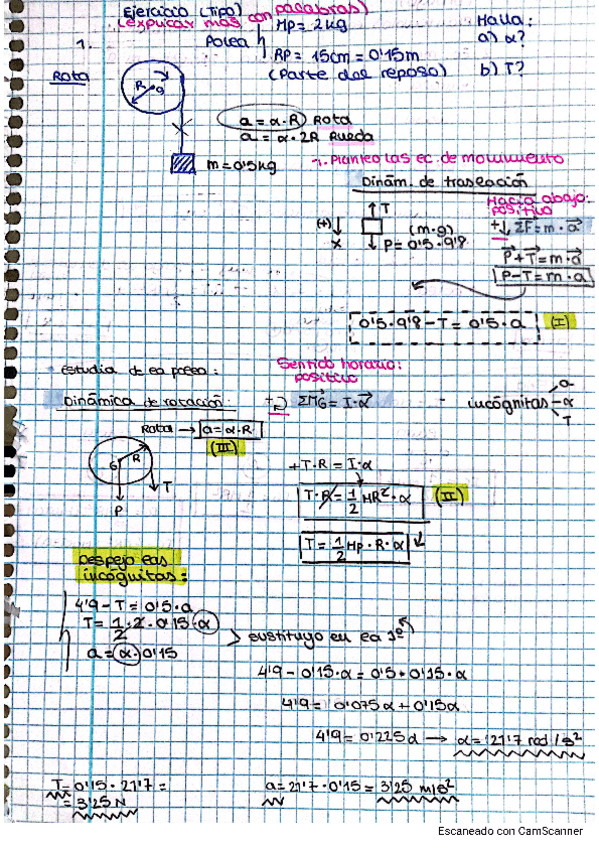 Ejercicio (Tipo)
(explicar más con palabras)
1. Polea Mp = 2kg
RP = 15cm = 0'15m
(Parte del reposo)
Halla:
a) α?
b) T?
Rota
R
G
a = α·R Rota
a = α·2R Rueda
m = 0'5kg
-1. Planteo las ec. de movimiento
Dinám. de traslación
Hacia abajo: positivo
T
(+)
x
(m·g)
P = 0'5·9'8
+↓ ΣF = m·a
P+T = m·a
P-T = m·a
0'5·9'8 - T = 0'5·a (I)
estudia de la polea:
Sentido horario: positivo
Dinámica de rotación:
+ ΣMG = I·α
- incógnitas a
α
T
Rota → a = α·R
(III)
G
R
T
P
+T·R = I·α
T·R = 1/2 MR²·α (II)
T = 1/2 Mp·R·α
Despejo las
incógnitas:
4'9 - T = 0'5·a
T = 1/2·2·0'15·α
a = α·0'15
sustituyo en la 1º
4'9 - 0'15·α = 0'5·0'15·α
4'9 = 0'075α + 0'15α
4'9 = 0'225α → α = 21'7 rad/s²
T = 0'15·21'7 =
= 3'25 N
a = 21'7·0'15 = 3'25 m/s²
Escaneado con CamScanner